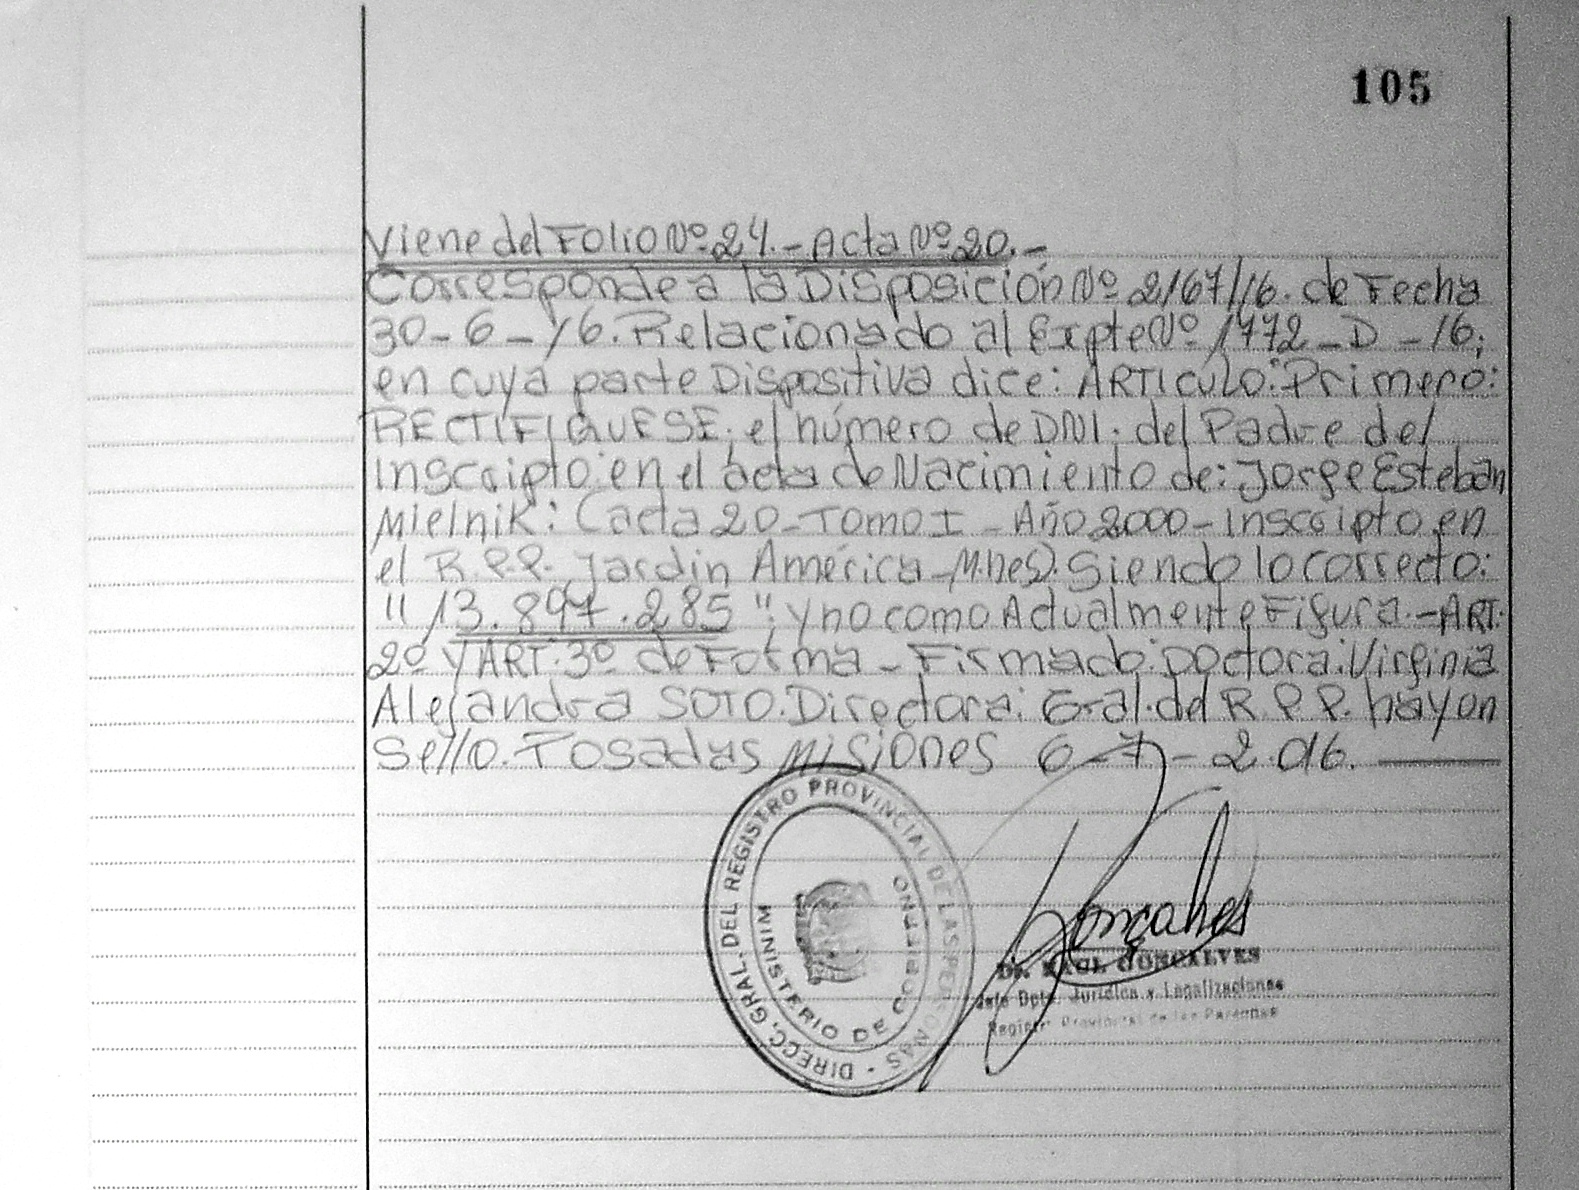 105
Viene del Folio Nº 24.- Acta Nº 20.-
Corresponde a la Disposición Nº 2167/16. de Fecha
30-6-16. Relacionado al Expte Nº 1772-D-16;
en cuya parte Dispositiva dice: ARTICULO: Primero:
RECTIFIQUESE; el número de DNI. del Padre del
Inscripto en el acta de Nacimiento de: Jorge Esteban
Mielnik: (acta 20-Tomo I - Año 2000 - Inscripto en
el R.P.P. Jardin América - M.nes). Siendo lo correcto:
"13.897.285"; y no como Actualmente Figura.- ART.
2º y ART. 3º de Forma - Firmado: Doctora: Virginia
Alejandra SOTO. Directora: Gral. del R.P.P. hay un
Sello. Posadas Misiones 6-7-2.016.
DIRECC. GRAL. DEL REGISTRO PROVINCIAL DE LAS PERSONAS -
MINISTERIO DE GOBIERNO
Gonçalves
Dr. RAUL GONCALVES
Jefe Dpto. Jurídica y Legalizaciones
Registro Provincial de las Personas